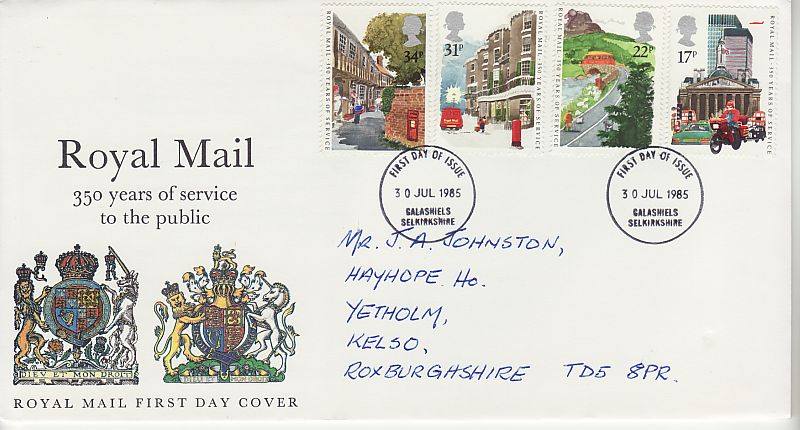 ROYAL MAIL · 350 YEARS OF SERVICE
34P
31P
ROYAL MAIL · 350 YEARS OF SERVICE
ROYAL MAIL · 350 YEARS OF SERVICE
22P
17P
ROYAL MAIL · 350 YEARS OF SERVICE
Royal Mail
350 years of service
to the public
FIRST DAY OF ISSUE
30 JUL 1985
GALASHIELS
SELKIRKSHIRE
FIRST DAY OF ISSUE
30 JUL 1985
GALASHIELS
SELKIRKSHIRE
MR. J. A. JOHNSTON,
HAYHOPE HO.
YETHOLM,
KELSO,
ROXBURGHSHIRE TD5 8PR.
DIEV ET MON DROIT
DIEU ET MON DROIT
ROYAL MAIL FIRST DAY COVER